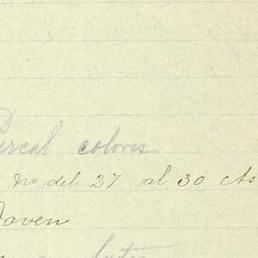 Percal colores
no del 27 al 30 cts
Joven